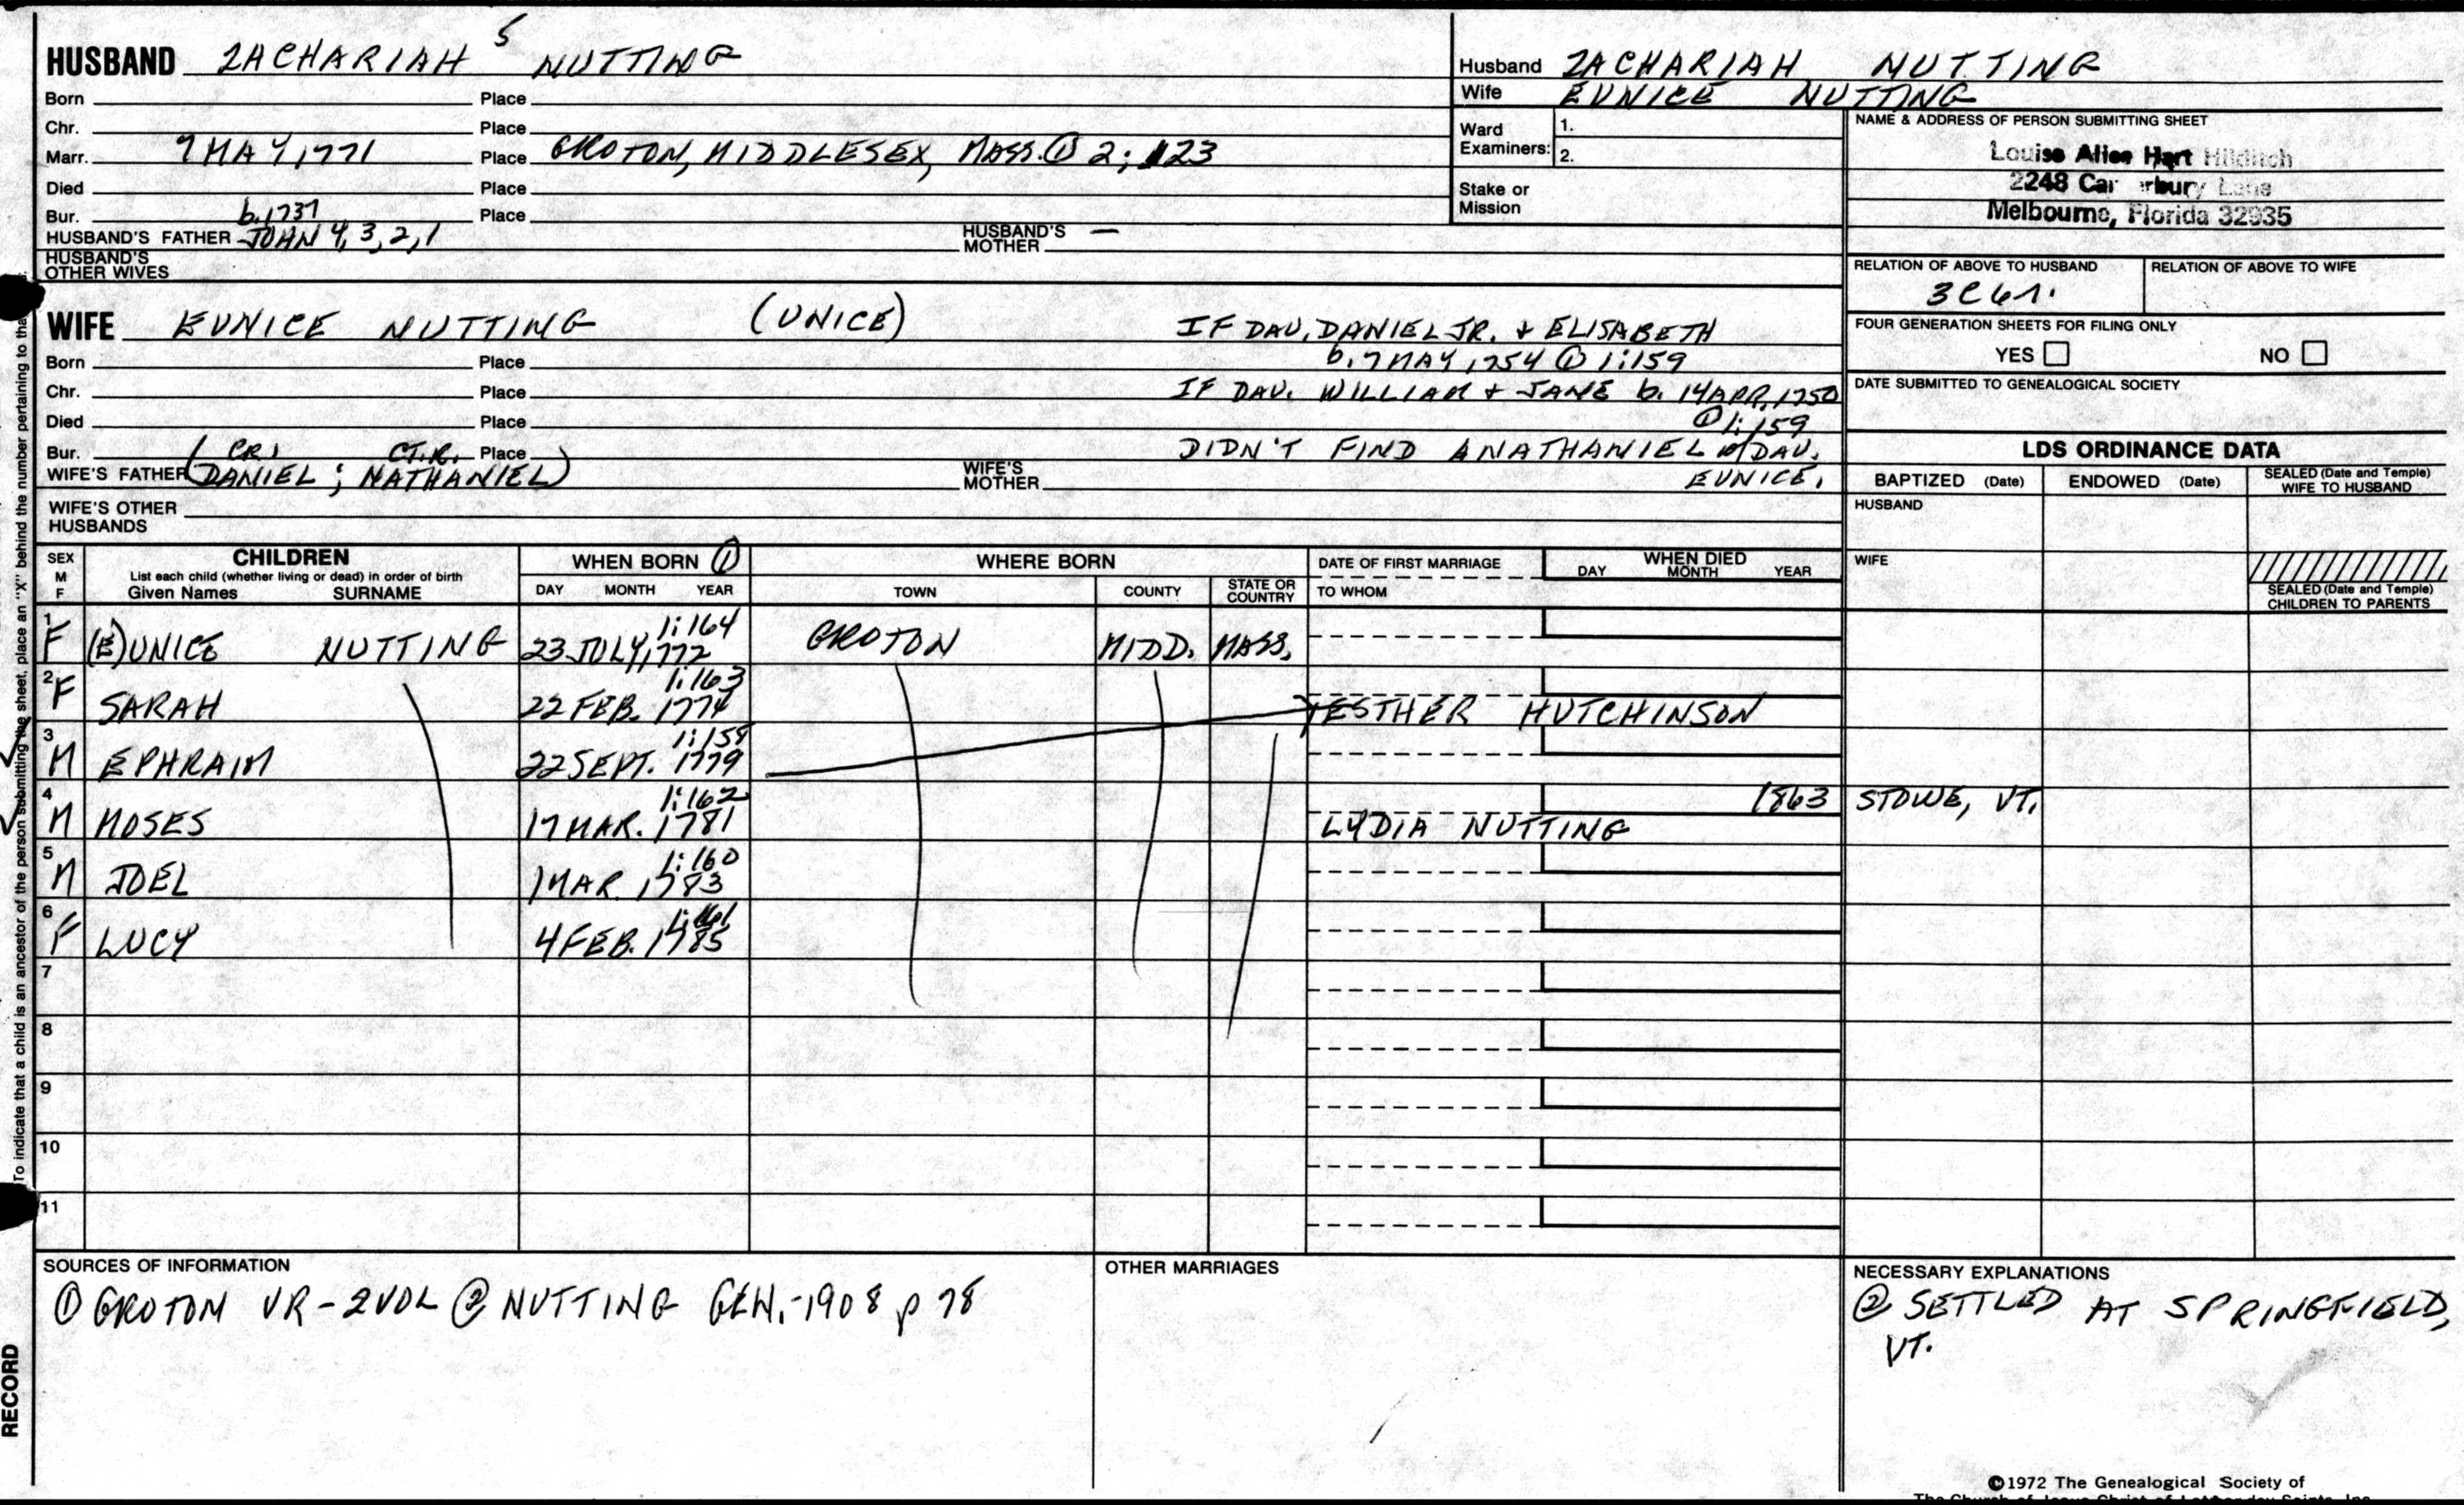 HUSBAND ZACHARIAH 5 NUTTING
Born Place
Chr. Place
Marr. 7 MAY, 1771 Place GROTON, MIDDLESEX, MASS. ① 2; 123
Died Place
Bur. Place
b. 1737
HUSBAND'S FATHER JOHN 4, 3, 2, 1 HUSBAND'S MOTHER —
HUSBAND'S OTHER WIVES
Husband ZACHARIAH NUTTING
Wife EUNICE NUTTING
Ward Examiners: 1.
2.
Stake or Mission
NAME & ADDRESS OF PERSON SUBMITTING SHEET
Louise Alice Hart Hilditch
2248 Car rbury Lane
Melbourne, Florida 32935
RELATION OF ABOVE TO HUSBAND RELATION OF ABOVE TO WIFE
FOUR GENERATION SHEETS FOR FILING ONLY
YES NO
DATE SUBMITTED TO GENEALOGICAL SOCIETY
WIFE EUNICE NUTTING (UNICE) IF DAU. DANIEL JR. + ELISABETH
Born Place b. 7 MAY 1754 ① 1:159
Chr. Place IF DAU. WILLIAM + JANE b. 14 APR, 1750
Died Place ① 1:159
Bur. (CR) CT.R. Place DIDN'T FIND A NATHANIEL w/ DAU.
WIFE'S FATHER (DANIEL; NATHANIEL) WIFE'S MOTHER EUNICE.
WIFE'S OTHER HUSBANDS
LDS ORDINANCE DATA
BAPTIZED (Date) ENDOWED (Date) SEALED (Date and Temple) WIFE TO HUSBAND
HUSBAND
WIFE
SEALED (Date and Temple) CHILDREN TO PARENTS
SEX M F
CHILDREN
List each child (whether living or dead) in order of birth
Given Names SURNAME
WHEN BORN ①
DAY MONTH YEAR
WHERE BORN
TOWN COUNTY STATE OR COUNTRY
DATE OF FIRST MARRIAGE
TO WHOM
WHEN DIED
DAY MONTH YEAR
1 F (E)UNICE NUTTING 23 JULY, 1772 1:164 GROTON MIDD. MASS.
2 F SARAH 22 FEB. 1774 1:163
3 M EPHRAIM 22 SEPT. 1779 1:159 ESTHER HUTCHINSON
4 M MOSES 17 MAR. 1781 1:162 LYDIA NUTTING 1863 STOWE, VT.
5 M JOEL 1 MAR. 1783 1:160
6 F LUCY 4 FEB. 1785 1:161
7
8
9
10
11
SOURCES OF INFORMATION
① GROTON VR - 2 VOL ② NUTTING GEN. - 1908 p 78
OTHER MARRIAGES
NECESSARY EXPLANATIONS
② SETTLED AT SPRINGFIELD,
VT.
©1972 The Genealogical Society of
The Church of Jesus Christ of Latter-day Saints, Inc.
To indicate that a child is an ancestor of the person submitting the sheet, place an "X" behind the number pertaining to tha
RECORD